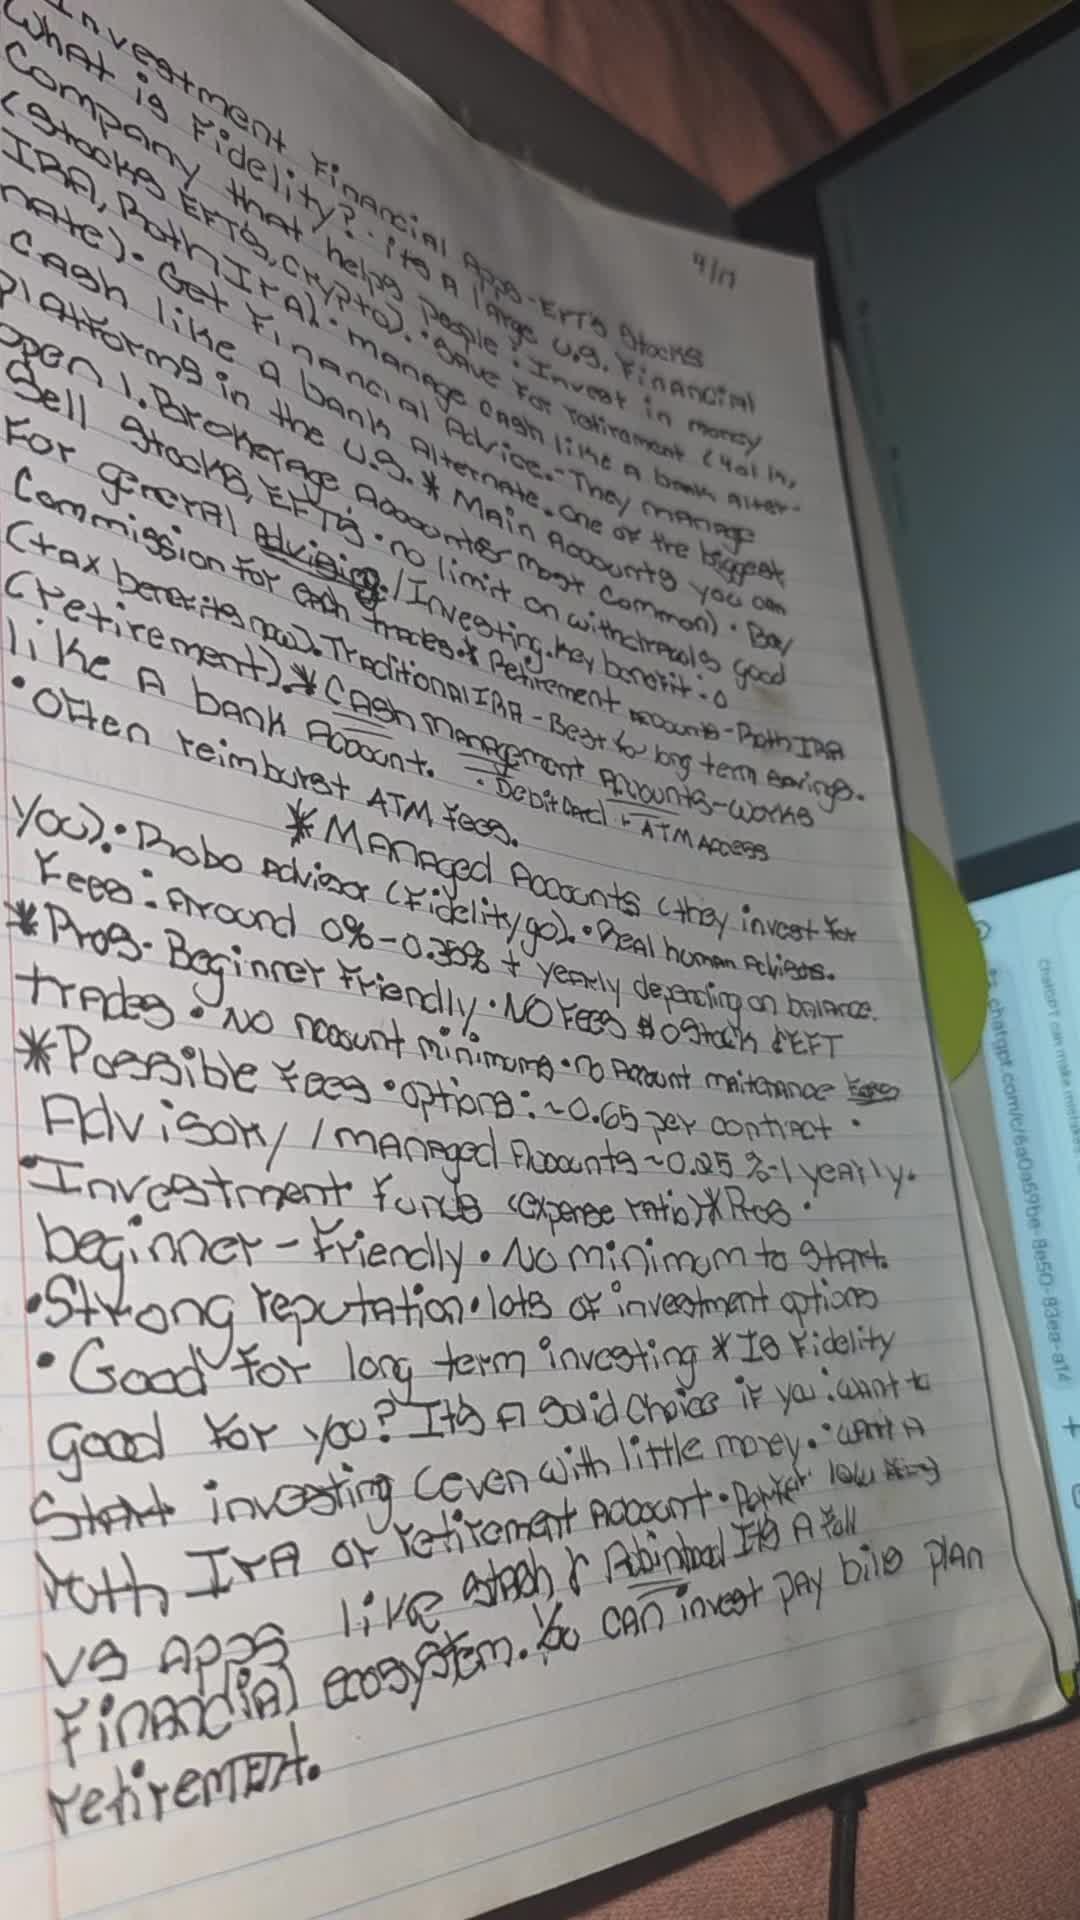 Investment Financial Apps - EFT'S Stocks
4/17
What is Fidelity? · its a large U.S. Financial
Company that helps people: Invest in money
(Stocks EFT'S, Crypto). · Save for retirement (401k,
IRA, Roth IrA). · manage cash like a bank alter-
nate). · Get Financial Advice. - They manage
cash like a bank Alternate. One of the biggest
platforms in the U.S. * Main Accounts you can
open 1. Brokerage Accounts most common) · Buy
Sell Stocks, EFTS · no limit on withdrawals good
For general Advising / Investing. Key benefit: 0
Commission for each trades. * Retirement Accounts - Roth IRA
(tax benefits now). Traditional IRA - Best for long term savings.
(retirement). * Cash Management Accounts - works
like A bank Account. · Debit card + ATM Access
· Often reimburst ATM fees.
* Managed Accounts (they invest for
you). · Robo Advisor (Fidelity go). · Real human Advisors.
Fees: Around 0% - 0.35% + yearly depending on balance.
* Pros - Beginner Friendly · NO Fees $0 Stock & EFT
trades · No account minimums · no Account maitenance fees
* Possible Fees · options: ~0.65 per contract ·
Advisory / managed Accounts ~0.25 % - 1 yearly.
· Investment funds (expense ratio) * Pros ·
beginner - friendly · No minimum to start.
· Strong reputation · lots of investment options
· Good for long term investing * Is Fidelity
good for you? Its A solid choice if you: want to
Start investing (even with little money. · want A
roth IrA or retirement Account · low
vs Apps like stash & Robinhood Its A full
Financial ecosystem. You can invest pay bills plan
retirement.
chatgpt.com/c/6a0a59be-8e50-83ea-a14